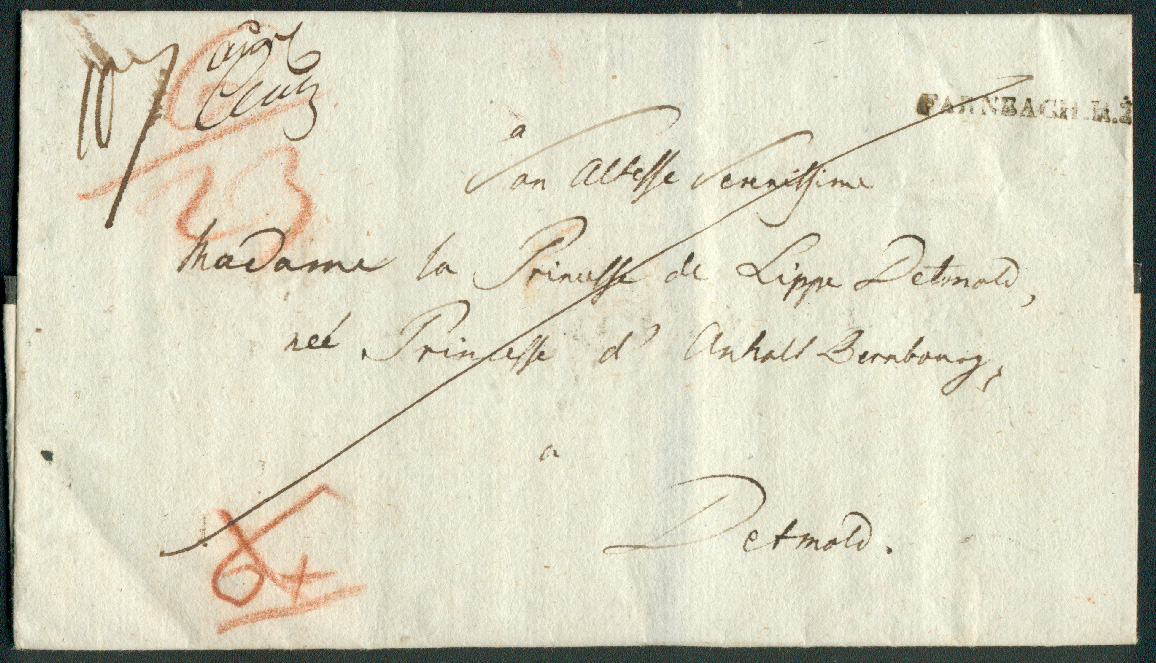 FARNBACH.R.3
a
Son Altesse Serenissime
Madame la Princesse de Lippe Detmold,
neé Princesse d' Anhalt Bernbourg,
a
Detmold.